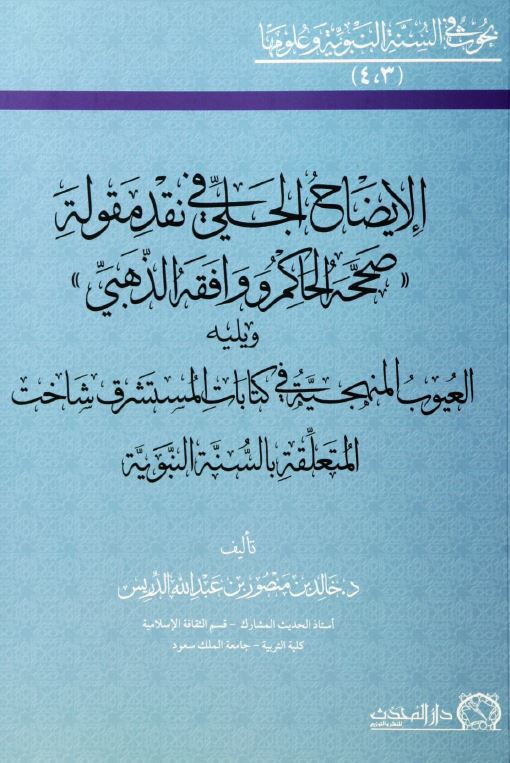 بحوث في السنة النبوية وعلومها
(٤،٣)
الإيضاح الجلي في نقد مقولة
«صححه الحاكم ووافقه الذهبي»
ويليه
العيوب المنهجية في كتابات المستشرق شاخت
المتعلقة بالسنة النبوية
تأليف
د. خالد بن منصور بن عبد الله الدريس
أستاذ الحديث المشارك - قسم الثقافة الإسلامية
كلية التربية - جامعة الملك سعود
دار المحدث
للنشر والتوزيع